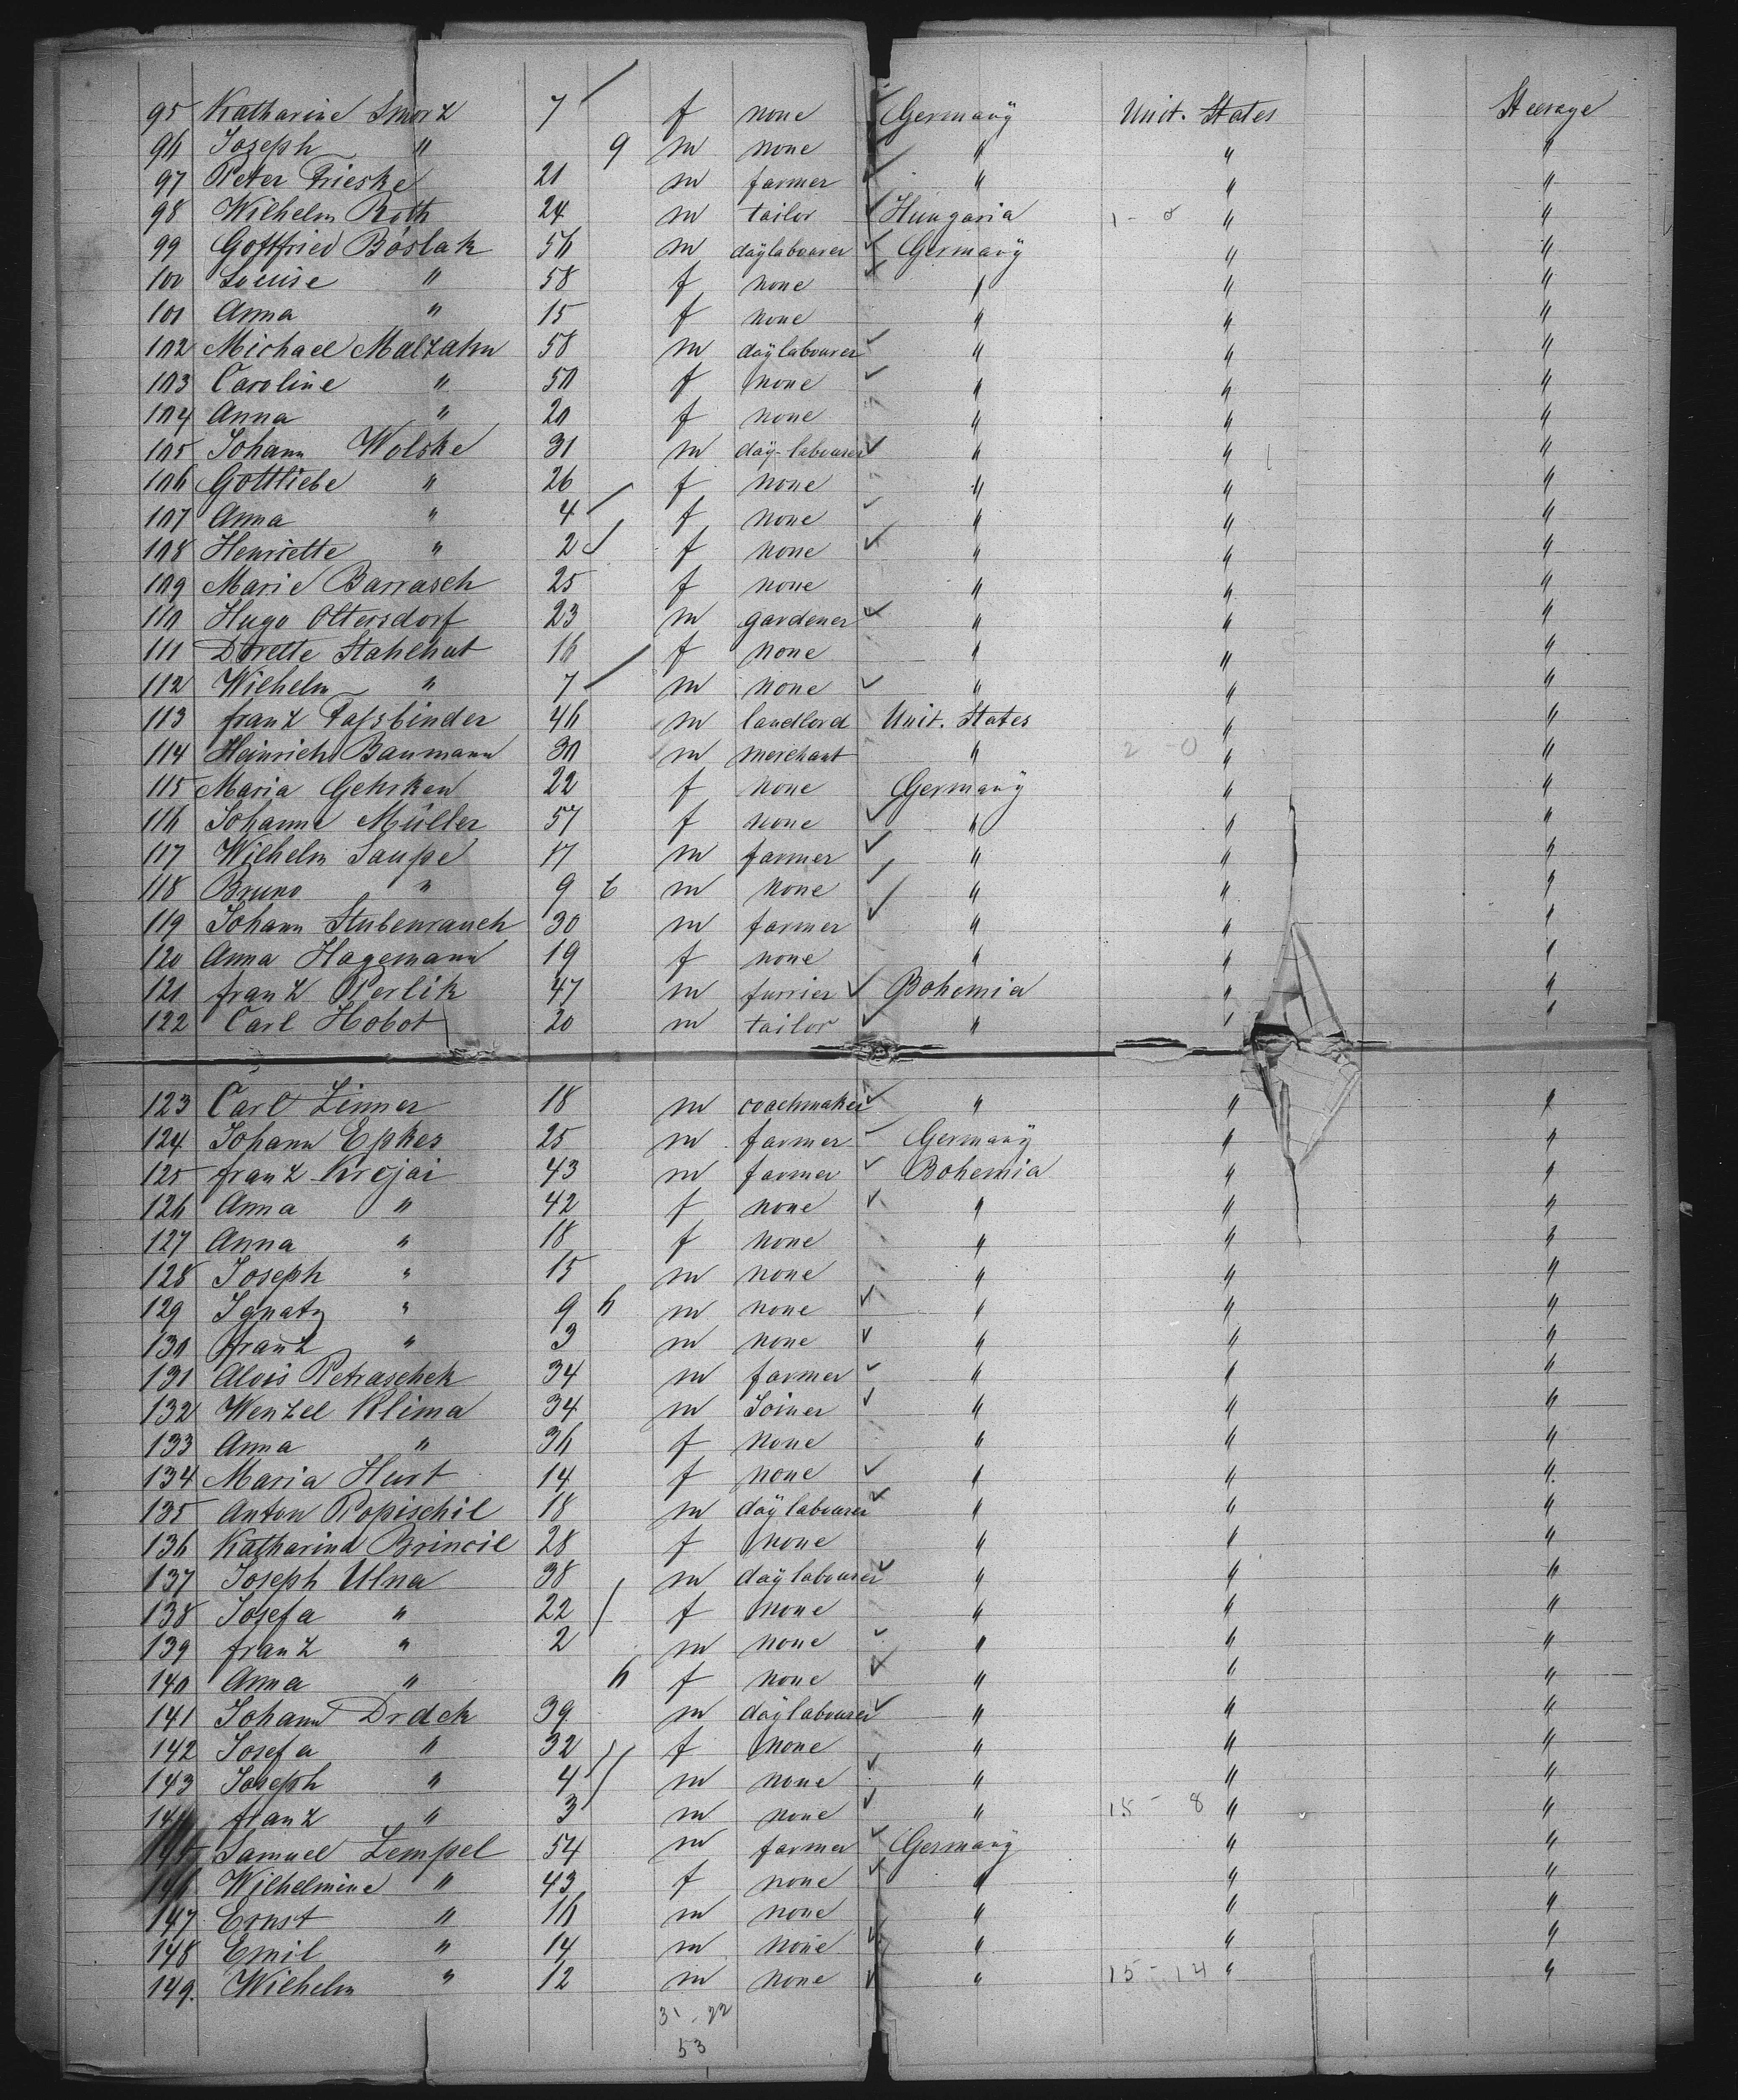 95 Katharine Smorz 7 f none Germany Unit. States Steerage
96 Joseph " 9 m none " " "
97 Peter Frieske 21 m farmer " " "
98 Wilhelm Roth 24 m tailor Hungaria 1 - 0 " "
99 Gottfried Böslak 56 m daylabourer Germany " "
100 Louise " 58 f none " " "
101 Anna " 15 f none " " "
102 Michael Malzahn 58 m daylabourer " " "
103 Caroline " 50 f none " " "
104 Anna " 20 f none " " "
105 Johann Wolske 31 m day-labourer " " "
106 Gottliebe " 26 f none " " "
107 Anna " 4 f none " " "
108 Henriette " 2 f none " " "
109 Marie Barrasch 25 f none " " "
110 Hugo Ottersdorf 23 m gardener " " "
111 Dorette Stahlhut 16 f none " " "
112 Wilhelm " 7 m none " " "
113 Franz Fassbinder 46 m landlord Unit. States " "
114 Heinrich Baumann 30 m merchant " 2 - 0 " "
115 Maria Gehrken 22 f none Germany " "
116 Johanne Müller 57 f none " " "
117 Wilhelm Saupe 17 m farmer " " "
118 Bruno " 9 6 m none " " "
119 Johann Stubenrauch 30 m farmer " " "
120 Anna Hagemann 19 f none " " "
121 Franz Perlik 47 m furrier Bohemia " "
122 Carl Hobot 20 m tailor " " "
123 Carl Zinner 18 m coachmaker " " "
124 Johann Epkes 25 m farmer Germany " "
125 Franz Krejai 43 m farmer Bohemia " "
126 Anna " 42 f none " " "
127 Anna " 18 f none " " "
128 Joseph " 15 m none " " "
129 Ignatz " 9 6 m none " " "
130 Franz " 3 m none " " "
131 Alois Petraschek 34 m farmer " " "
132 Wenzel Klima 34 m Joiner " " "
133 Anna " 36 f none " " "
134 Maria Hurt 14 f none " " "
135 Anton Popischil 18 m day labourer " " "
136 Katharina Brincil 28 f none " " "
137 Joseph Ulna 38 m day labourer " " "
138 Josefa " 22 f none " " "
139 Franz " 2 m none " " "
140 Anna " 6 f none " " "
141 Johann Drdek 39 m daylabourer " " "
142 Josefa " 32 f none " " "
143 Joseph " 4 m none " " "
144 Franz " 3 m none " 15 - 8 " "
145 Samuel Zempel 54 m farmer Germany " "
146 Wilhelmine " 43 f none " " "
147 Ernst " 16 m none " " "
148 Emil " 14 m none " " "
149. Wilhelm " 12 m none " 15 - 14 " "
31 . 22
53